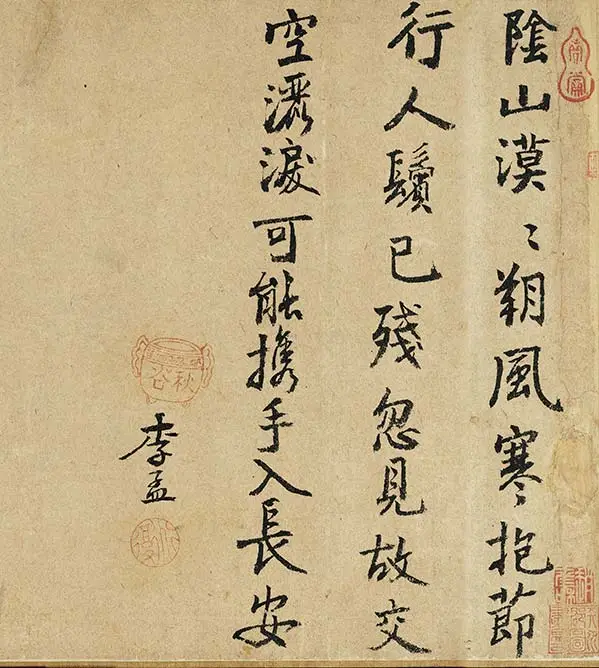 陰山漠〻朔風寒抱節
行人鬢已殘忽見故交
空灑淚可能攜手入長安
李孟
秋谷